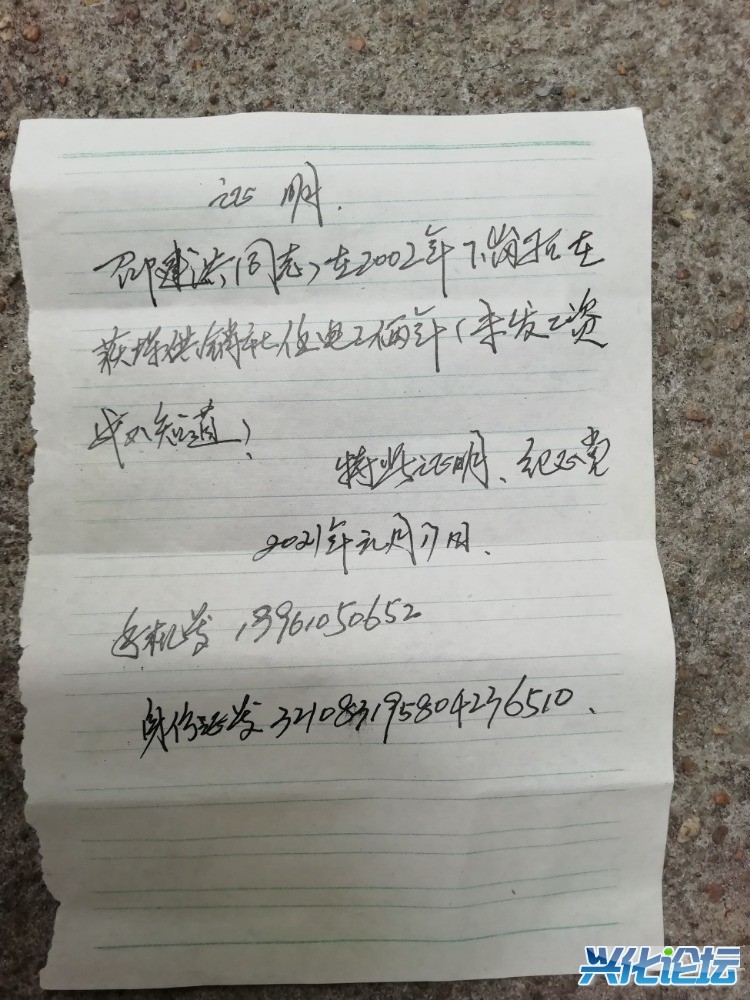 证明.
邵建洪(同志)在2002年下岗攻在
荻垛供销社任电工俩年(未发工资
我不知道)
特此证明、纪正党
2021年元月17日.
手机号 13961050652
身份证号 321083195804236510.
兴化论坛